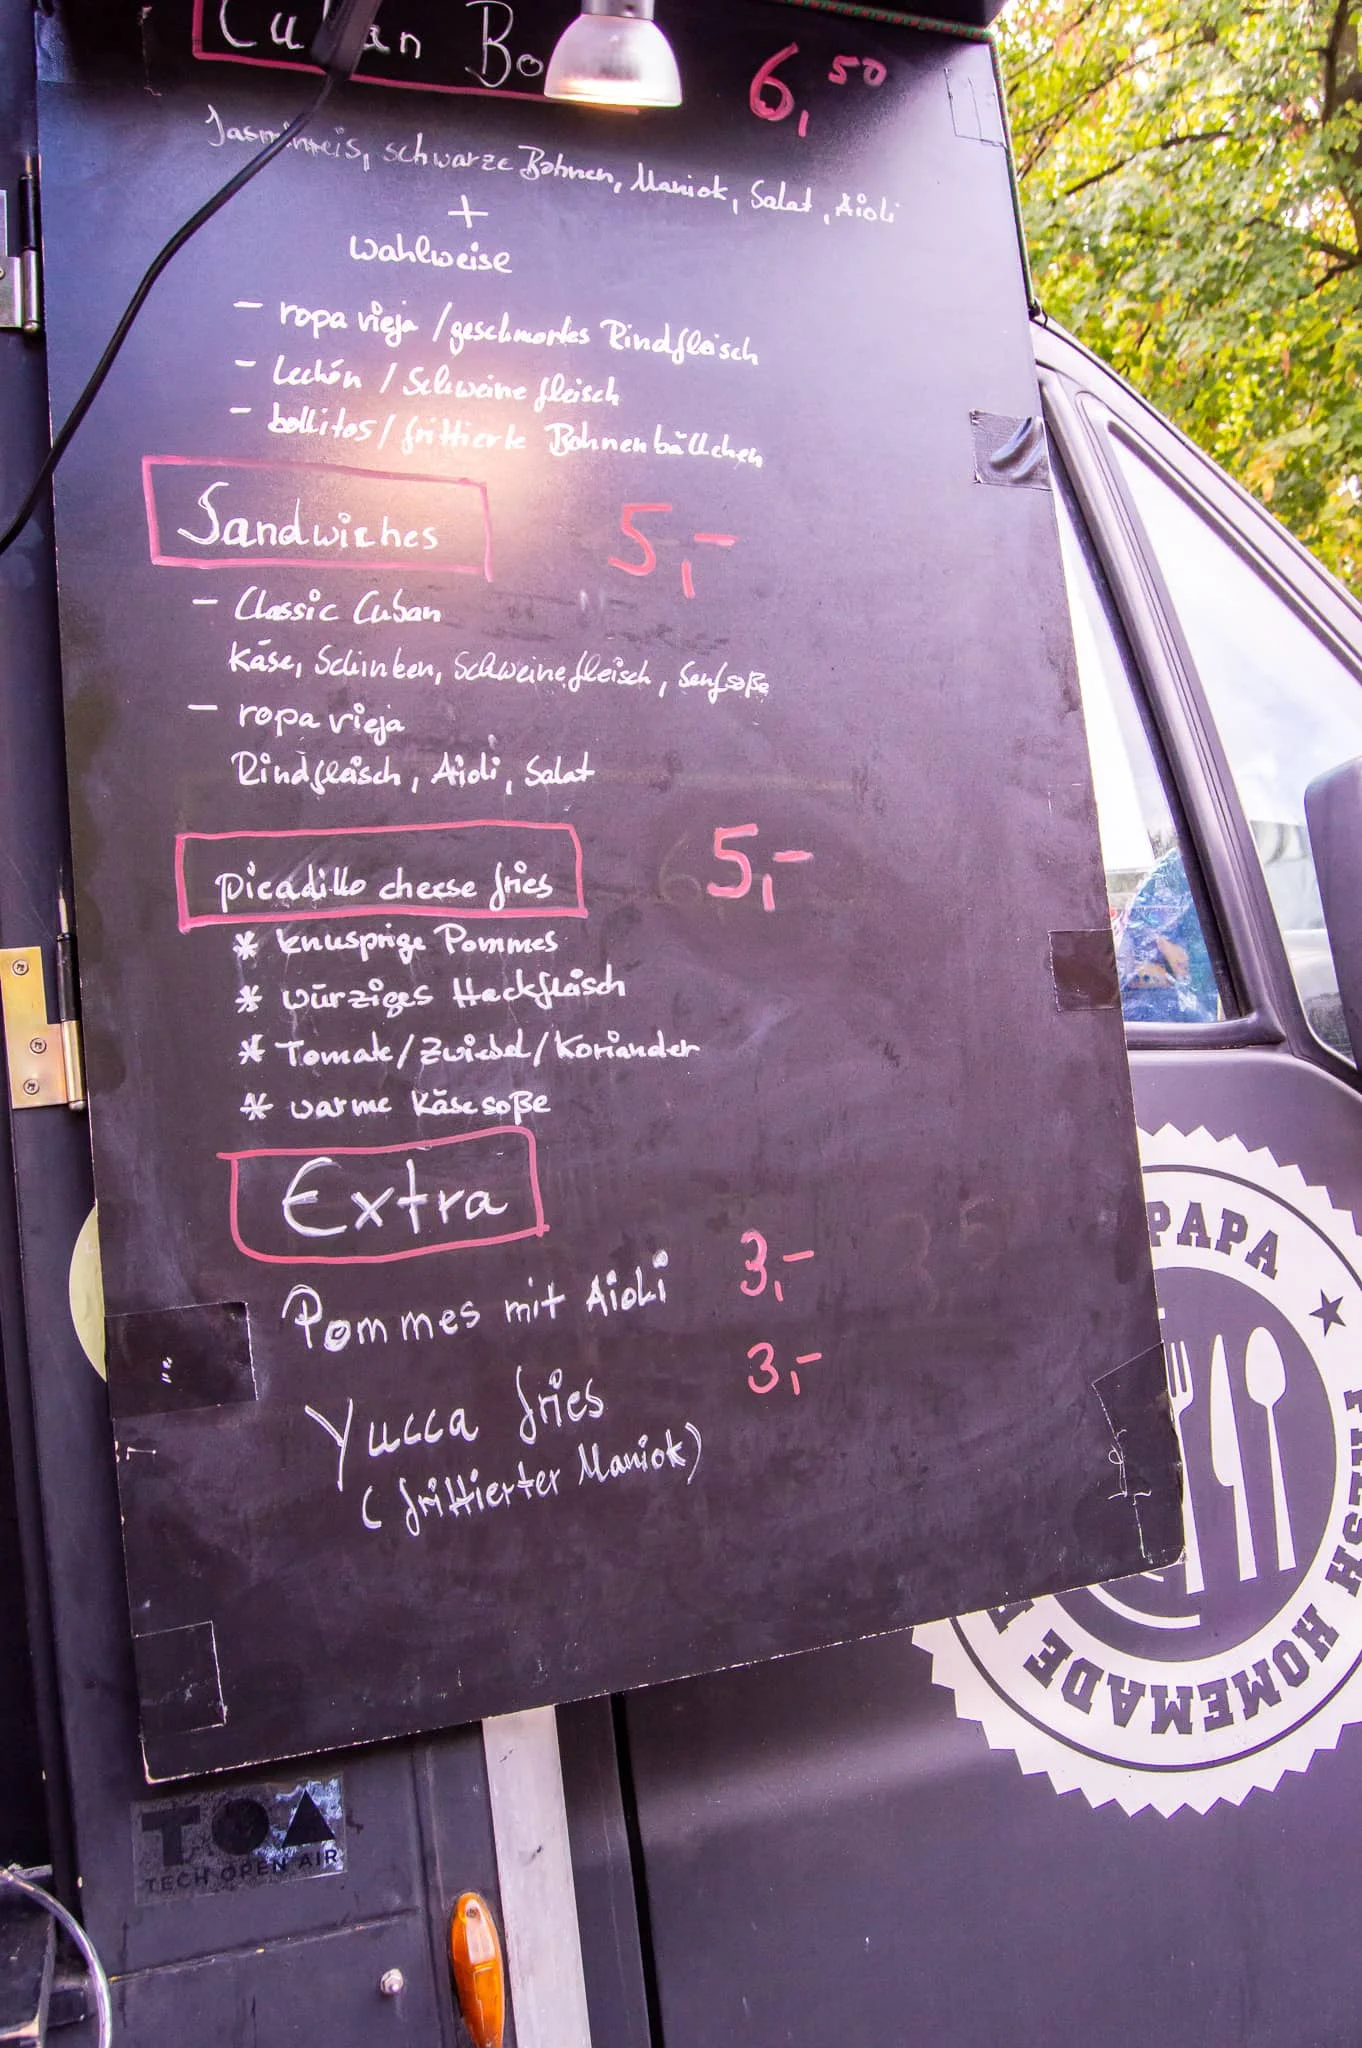 Cuban Bo
6,50
Jasminreis, schwarze Bohnen, Maniok, Salat, Aioli
+
wahlweise
- ropa vieja / geschmortes Rindfleisch
- Lechón / Schweinefleisch
- bollitos / frittierte Bohnenbällchen
Sandwiches 5,-
- Classic Cuban
Käse, Schinken, Schweinefleisch, Senfsoße
- ropa vieja
Rindfleisch, Aioli, Salat
picadillo cheese fries 5,-
* knusprige Pommes
* würziges Hackfleisch
* Tomate/Zwiebel/Koriander
* warme Käsesoße
Extra
Pommes mit Aioli 3,-
Yucca fries 3,-
(frittierter Maniok)
PAPA
FRESH HOMEMADE
TOA
TECH OPEN AIR